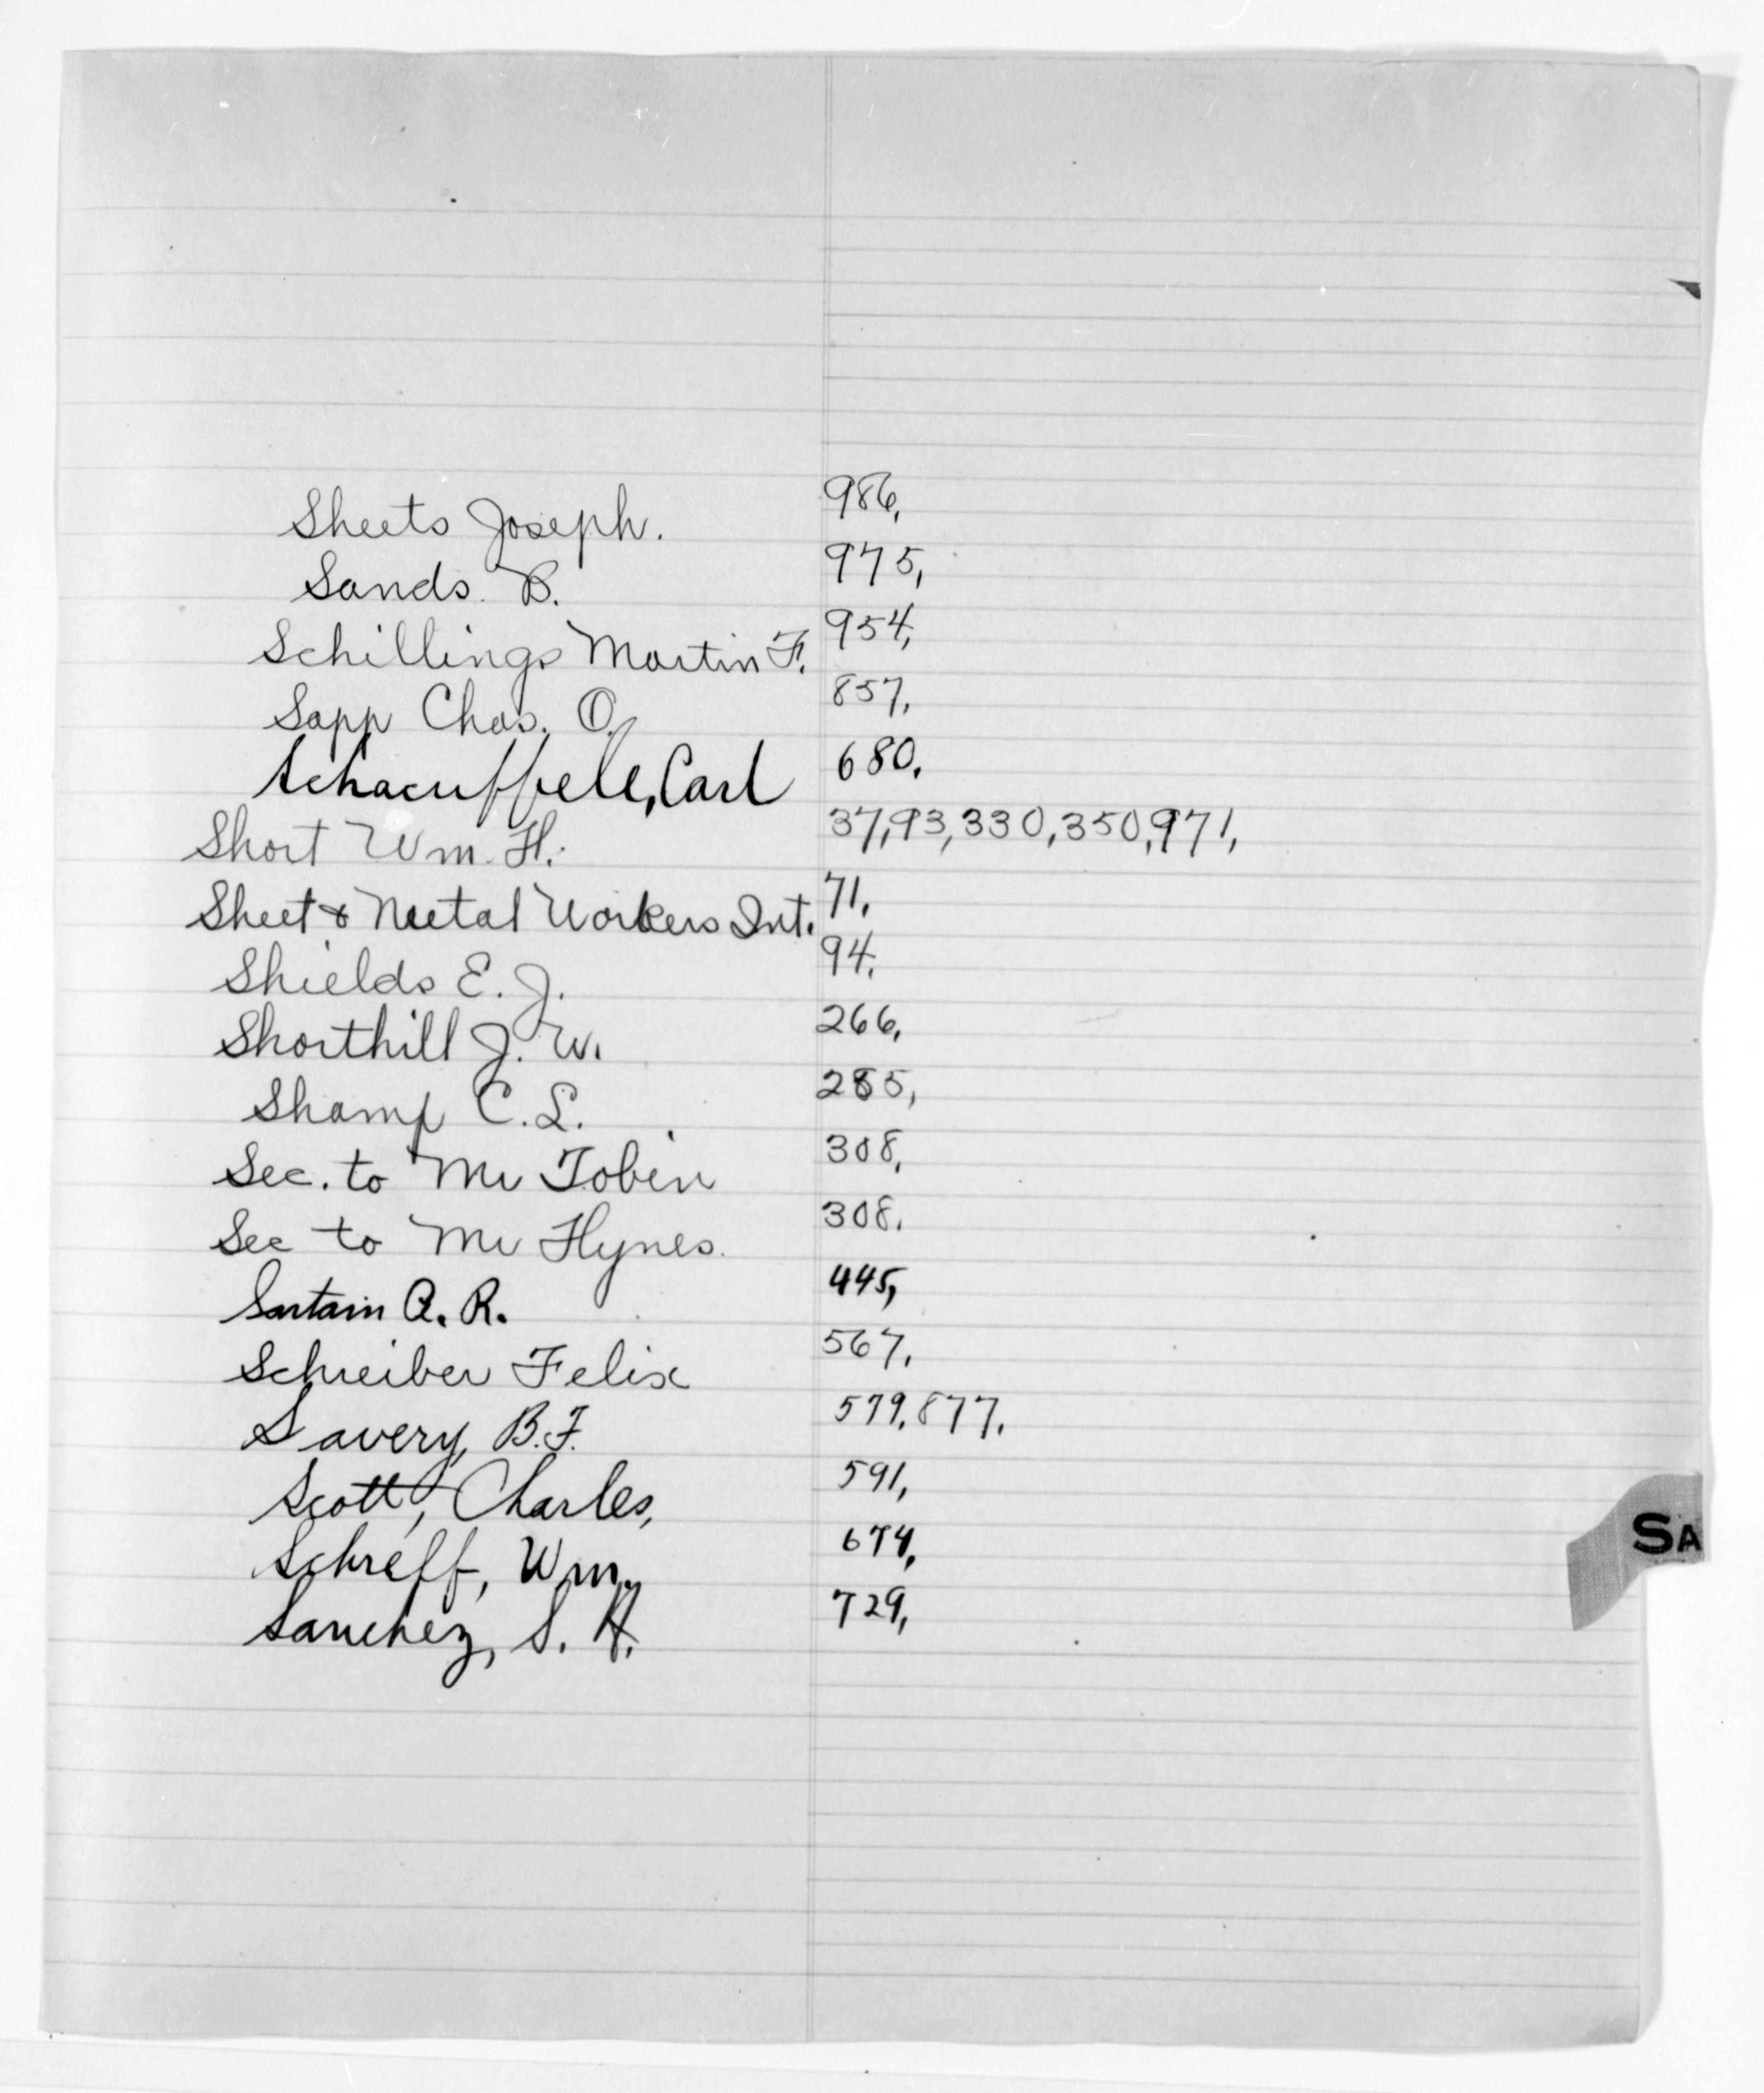 Sheets Joseph. 986,
Sands. B. 975,
Schillings Martin F. 954,
Sapp Chas. O. 857,
Schaeuffele, Carl 680,
Short Wm. H. 37,93,330,350,971,
Sheet & Metal Workers Int. 71,
Shields E. J. 94,
Shorthill J. W. 266,
Shamp C. L. 285,
Sec. to Mr Tobin 308,
Sec to Mr Hynes. 308,
Sartain A. R. 445,
Schreiber Felix 567,
Savery, B. F. 579,877,
Scott, Charles, 591,
Schreff, Wm. 674,
Sanchez, S. H. 729,
SA